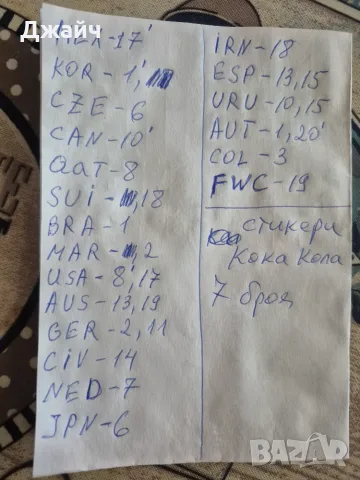 Джайч
MEX-17'
KOR-1',
CZE-6
CAN-10'
QAT-8
SUI-,18
BRA-1
MAR-,2
USA-8',17
AUS-13,19
GER-2,11
CIV-14
NED-7
JPN-6
IRN-18
ESP-13,15
URU-10,15
AUT-1,20'
COL-3
FWC-19
стикери
Кока Кола
7 броя
BAZAR